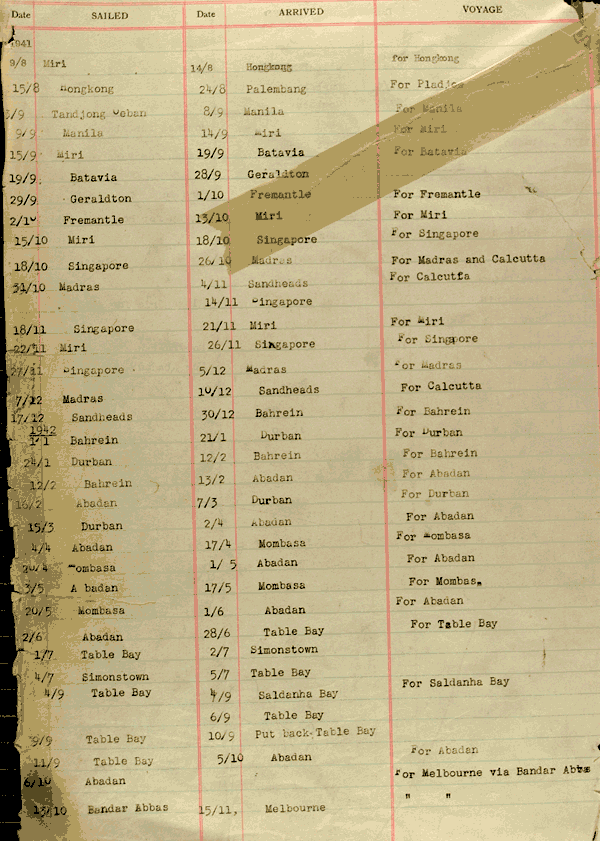 Date SAILED Date ARRIVED VOYAGE
1941
9/8 Miri 14/8 Hongkong for Hongkong
15/8 Hongkong 24/8 Palembang For Pladjoe
3/9 Tandjong Oeban 8/9 Manila For Manila
9/9 Manila 14/9 Miri For Miri
15/9 Miri 19/9 Batavia For Batavia
19/9 Batavia 28/9 Geraldton
29/9 Geraldton 1/10 Fremantle For Fremantle
2/10 Fremantle 13/10 Miri For Miri
15/10 Miri 18/10 Singapore For Singapore
18/10 Singapore 26/10 Madras For Madras and Calcutta
31/10 Madras 4/11 Sandheads For Calcutta
14/11 Singapore
18/11 Singapore 21/11 Miri For Miri
22/11 Miri 26/11 Singapore For Singapore
27/11 Singapore 5/12 Madras For Madras
7/12 Madras 10/12 Sandheads For Calcutta
17/12 Sandheads 30/12 Bahrein For Bahrein
1942
1/1 Bahrein 21/1 Durban For Durban
24/1 Durban 12/2 Bahrein For Bahrein
12/2 Bahrein 13/2 Abadan For Abadan
16/2 Abadan 7/3 Durban For Durban
15/3 Durban 2/4 Abadan For Abadan
4/4 Abadan 17/4 Mombasa For Mombasa
20/4 Mombasa 1/ 5 Abadan For Abadan
3/5 A badan 17/5 Mombasa For Mombasa
20/5 Mombasa 1/6 Abadan For Abadan
2/6 Abadan 28/6 Table Bay For Table Bay
1/7 Table Bay 2/7 Simonstown
4/7 Simonstown 5/7 Table Bay
4/9 Table Bay 4/9 Saldanha Bay For Saldanha Bay
6/9 Table Bay
9/9 Table Bay 10/9 Put back Table Bay
11/9 Table Bay 5/10 Abadan For Abadan
6/10 Abadan For Melbourne via Bandar Abbas
13/10 Bandar Abbas 15/11, Melbourne " "